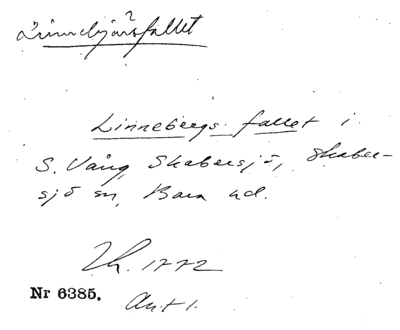 ?
Linnebjärsfallet
Linnebergs fallet i
S. Vång, Skabersjö, Skaber-
sjö sn, Bara hd.
Lh. 1772
Nr 6385. Akt 1.